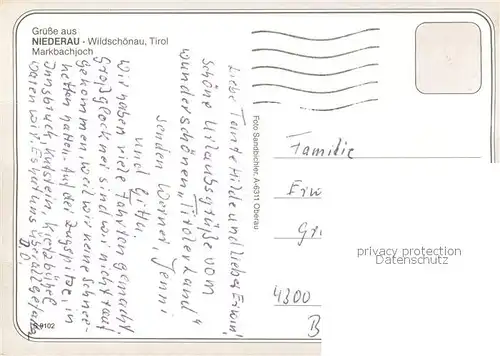 Grüße aus
NIEDERAU - Wildschönau, Tirol
Markbachjoch
Liebe Tante Hilde und lieber Erwin!
Schöne Urlaubsgrüße vom
wunderschönen Tirolerland"
senden Werner, Jenni
und Gitta.
Wir haben viele Fahrten gemacht.
Großglockner sind wir nicht rauf
gekommen, weil wir keine Schnee-
ketten hatten. Auf der Zugspitze, in
Innsbruck, Kufstein, Kietzbühel
waren wir. Es hat uns überall gefallen
B.O.
Foto Sandbichler, A-6311 Oberau
Familie
Erw
Gr
4300
B
privacy protection
Datenschutz
9102